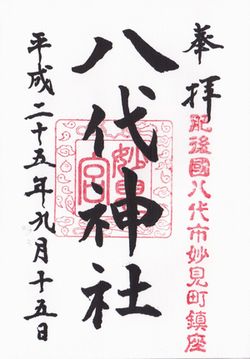 奉拝
肥後國八代市妙見町鎮座
八代神社
妙見宮
平成二十五年九月十五日